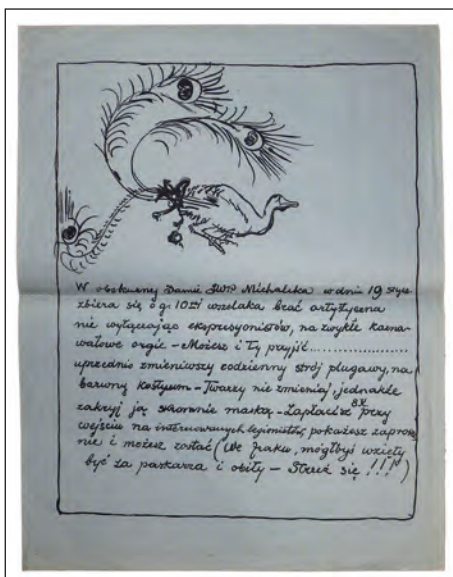 W obskurnej Damie JWP Michalika w dniu 19 stycz.
zbiera się o g. 10 wszelaka brać artystyczna
nie wyłączając ekspresyonistów, na zwykłe karna-
wałowe orgie – Możesz i Ty przyjść....................
uprzednio zmieniwszy codzienny strój plugawy, na
barwny kostyum – Twarzy nie zmieniaj, jednakże
zakryj ją starannie maską – Zapłacisz 8K przy
wejściu na internowanych legionistów, pokażesz zaprosze
nie i możesz zostać (We fraku, mógłbyś wzięty
być za paskarza i obity – Strzeż się !!!)